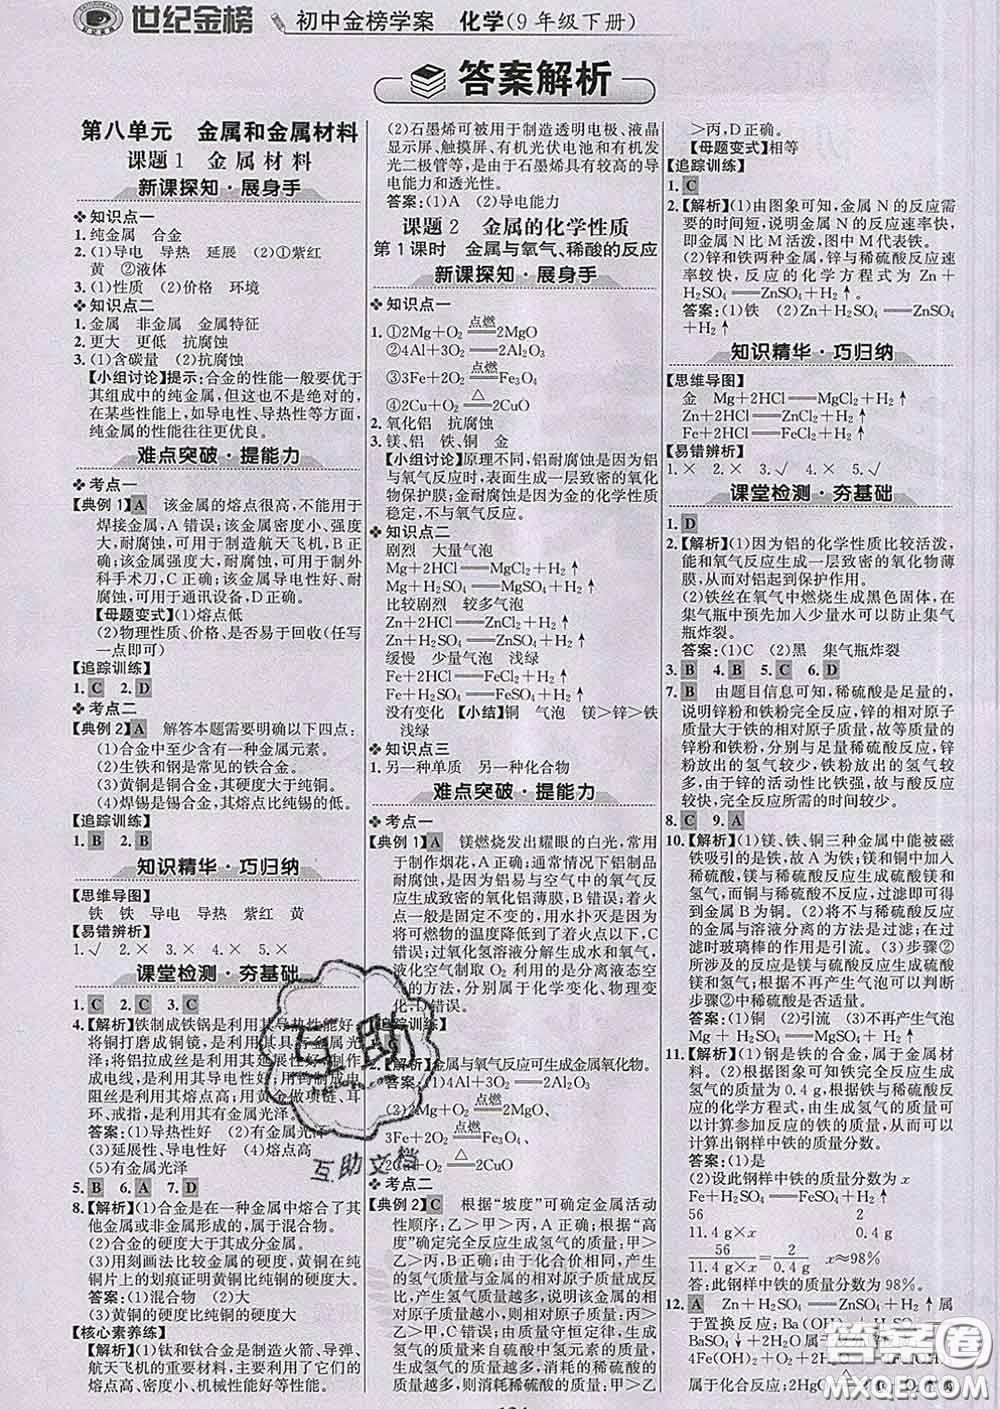 世纪金榜
初中金榜学案 化学(9年级下册)
答案解析
第八单元 金属和金属材料
课题1 金属材料
新课探知·展身手
❖ 知识点一
1. 纯金属 合金
2. (1)导电 导热 延展 (2)①紫红
黄 ②液体
3. (1)性质 (2)价格 环境
❖ 知识点二
1. 金属 非金属 金属特征
2. 更大 更低 抗腐蚀
3. (1)含碳量 (2)抗腐蚀
【小组讨论】提示:合金的性能一般要优于
其组成中的纯金属,但这也不是绝对的,
在某些性能上,如导电性、导热性等方面,
纯金属的性能往往更优良。
难点突破·提能力
❖ 考点一
【典例1】A 该金属的熔点很高,不能用于
焊接金属,A错误;该金属密度小、强度
大,耐腐蚀,可用于制造航天飞机,B正
确;该金属强度大、耐腐蚀,可用于制外
科手术刀,C正确;该金属导电性好,耐
腐蚀,可用于通讯设备,D正确。
【母题变式】(1)熔点低
(2)物理性质、价格、是否易于回收(任写
一点即可)
【追踪训练】
1. C 2. D
❖ 考点二
【典例2】A 解答本题需要明确以下四点:
(1)合金中至少含有一种金属元素。
(2)生铁和钢是常见的铁合金。
(3)黄铜是铜合金,其硬度大于纯铜。
(4)焊锡是锡合金,其熔点比纯锡的低。
【追踪训练】
1. B 2. B
知识精华·巧归纳
【思维导图】
铁 铁 导电 导热 紫红 黄
【易错辨析】
1. √ 2. × 3. × 4. × 5. ×
课堂检测·夯基础
1. C 2. C 3. C
4. 【解析】铁制成铁锅是利用其导热性能好,
将铜打磨成铜镜,是利用其具有金属光
泽;将铝拉成丝是利用其延展性好,制作
成电线,是利用其导电性好;用钨制成电
阻丝是利用其熔点高;用黄金做项链、耳
环、戒指,是利用其有金属光泽。
答案:(1)导热性好 (2)有金属光泽
(3)延展性、导电性好 (4)熔点高
(5)有金属光泽
5. B 6. A 7. D
8. 【解析】(1)合金是在一种金属中熔合了其
他金属或非金属形成的,属于混合物。
(2)合金的硬度大于其成分金属。
(3)用刻画法比较硬度大小,黄铜片在纯
铜片上的划痕证明黄铜比纯铜的硬度大。
答案:(1)混合物 (2)大
(3)黄铜的硬度比纯铜的硬度大
【核心素养练】
【解析】(1)钛和钛合金是制造火箭、导弹、
航天飞机的重要材料,主要利用了它们的
熔点高、密度小、机械性能好等特点。
(2)石墨烯可被用于制造透明电极、液晶
显示屏、触摸屏、有机光伏电池和有机发
光二极管等,是由于石墨烯具有较高的导
电能力和透光性。
答案:(1)A (2)导电能力
课题2 金属的化学性质
第1课时 金属与氧气、稀酸的反应
新课探知·展身手
❖ 知识点一
1. ①2Mg+O₂ 点燃══ 2MgO
②4Al+3O₂══2Al₂O₃
③3Fe+2O₂ 点燃══ Fe₃O₄
④2Cu+O₂ △══ 2CuO
2. 氧化铝 抗腐蚀
3. 镁、铝 铁、铜 金
【小组讨论】原理不同,铝耐腐蚀是因为铝
与氧气反应时,表面生成一层致密的氧化
物保护膜;金耐腐蚀是因为金的化学性质
稳定,不与氧气反应。
❖ 知识点二
剧烈 大量气泡
Mg+2HCl══MgCl₂+H₂↑
Mg+H₂SO₄══MgSO₄+H₂↑
比较剧烈 较多气泡
Zn+2HCl══ZnCl₂+H₂↑
Zn+H₂SO₄══ZnSO₄+H₂↑
缓慢 少量气泡 浅绿
Fe+2HCl══FeCl₂+H₂↑
Fe+H₂SO₄══FeSO₄+H₂↑
没有变化 【小结】铜 气泡 镁>锌>铁
浅绿
❖ 知识点三
1. 另一种单质 另一种化合物
难点突破·提能力
❖ 考点一
【典例1】A 镁燃烧发出耀眼的白光,常用
于制作烟花,A正确;通常情况下铝制品
耐腐蚀,是因易与空气中的氧气反应
生成致密的氧化铝薄膜,B错误;着火点
一般是固定不变的,用水扑灭是因为
可将可燃物的温度降到了着火点以下,C
错误;过氧化氢溶液分解生成水和氧气,
液化空气制取O₂利用的是分离液态空
气的方法,分别属于化学变化、物理变
化,D错误。
【追踪训练】
2. 【解析】金属与氧气反应可生成金属氧化物。
答案:(1)4Al+3O₂══2Al₂O₃
(3)2Mg+O₂ 点燃══ 2MgO、
3Fe+2O₂ 点燃══ Fe₃O₄、
2Cu+O₂ △══ 2CuO
❖ 考点二
【典例2】C 根据“坡度”可确定金属活动
性顺序:乙>甲>丙,A错误;根据“高
度”确定完全反应生成氢气的质量:甲>
乙>丙,B错误;由化合价相同,产生
的氢气质量与金属的相对原子质量成反
比,金属完全反应产生氢气的质量越大,
金属的相对原子质量越小,则相对原子质量:丙>
乙>甲,C错误;根据质量守恒定律,生成
氢气的质量来自硫酸中氢元素的质量,
生成氢气的质量越大,消耗的稀硫酸的
质量越多,则消耗硫酸的质量:甲>乙
>丙,D正确。
【母题变式】相等
【追踪训练】
1. C
2. 【解析】(1)由图象可知,金属N的反应需
要的时间短,说明金属N的反应速率快,
即金属N比M活泼,图中M代表铁。
(2)锌和铁两种金属,锌与稀硫酸反应速
率较快,反应的化学方程式为Zn+
H₂SO₄══ZnSO₄+H₂↑。
答案:(1)铁 (2)Zn+H₂SO₄══ZnSO₄
+H₂↑
知识精华·巧归纳
【思维导图】
金 Mg+2HCl══MgCl₂+H₂↑
Zn+2HCl══ZnCl₂+H₂↑
Fe+2HCl══FeCl₂+H₂↑
【易错辨析】
1. × 2. × 3. √ 4. × 5. √
课堂检测·夯基础
1. D
2. 【解析】(1)因为铝的化学性质比较活泼,
能和氧气反应生成一层致密的氧化物薄
膜,从而对铝起到保护作用。
(2)铁丝在氧气中燃烧生成黑色固体,在
集气瓶中预先加入少量水可以防止集气
瓶炸裂。
答案:(1)C (2)黑 集气瓶炸裂
3. B 4. B 5. C 6. D
7. B 由题目信息可知,稀硫酸是足量的,
说明锌粉和铁粉完全反应,锌的相对原子
质量大于铁的相对原子质量,故等质量的
锌粉和铁粉,分别与足量稀硫酸反应,锌
粉放出的氢气较少,铁粉放出的氢气较
多,由于锌的活动性比铁强,故与酸反应
较快,完全反应所需的时间较少。
8. C 9. A
10. 【解析】(1)镁、铁、铜三种金属中能被磁
铁吸引的是铁,故A为铁;镁和铜中加入
稀硫酸,镁与稀硫酸反应生成硫酸镁和
氢气,而铜与稀硫酸不反应,过滤即可得
金属B为铜。(2)将不与稀硫酸反应
的金属与溶液分离的方法是过滤;在过
滤时玻璃棒的作用是引流。(3)步骤②
所涉及的反应是镁与稀硫酸反应生成硫酸
镁和氢气;根据不再产生气泡可以判断
步骤②中镁和稀硫酸不再发生反应。
答案:(1)铜 (2)引流 (3)不再产生气泡
Mg+H₂SO₄══MgSO₄+H₂↑
11. 【解析】(1)钢是铁的合金,属于金属材
料。(2)根据图象可知铁完全反应生成
氢气的质量为0.4 g;根据铁与稀硫酸反
应的化学方程式,由生成氢气的质量可以
计算参加反应的铁的质量,由此可以
计算出钢样中铁的质量分数。
答案:(1)是
(2)设此钢样中铁的质量分数为x
Fe+H₂SO₄══FeSO₄+H₂↑
56 2
11.4 g×x 0.4 g
56/(11.4 g×x)=2/0.4 g x≈98%
答:此钢样中铁的质量分数为98%。
12. A Zn+H₂SO₄══ZnSO₄+H₂↑属
于置换反应;Ba(OH)₂+H₂SO₄══
BaSO₄↓+2H₂O属于
4Fe(OH)₂+O₂+2H₂O
属于化合反应;2HgO △══
互助
互助文档
答案圈
MXQE.COM